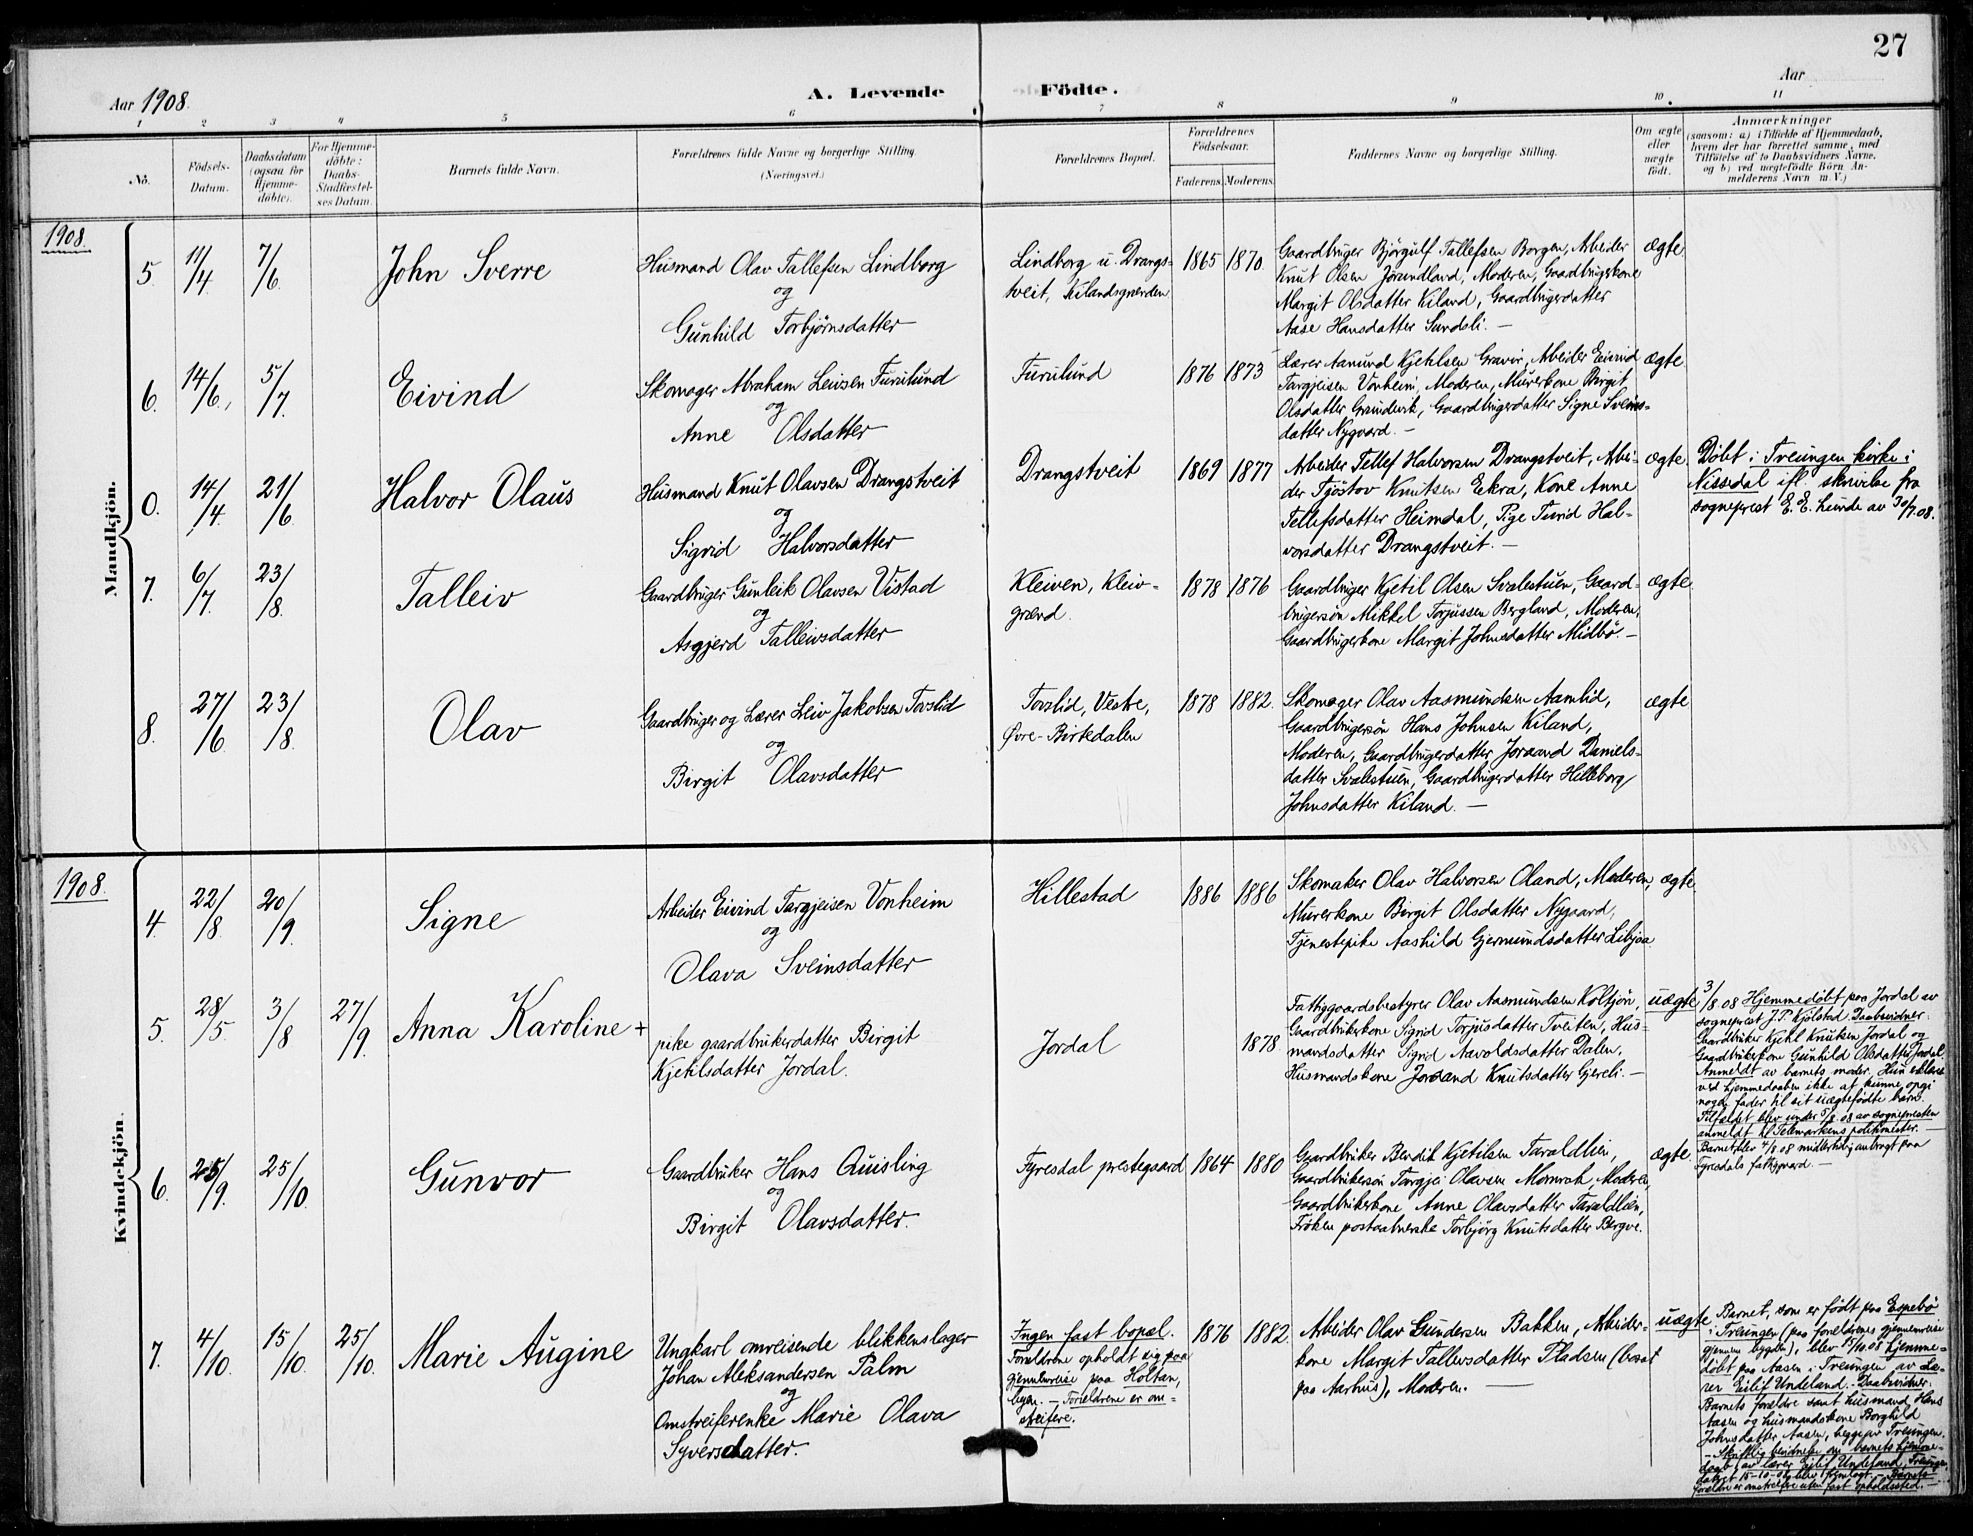 27
Aar 1908.
A. Levende Födte.
Aar
1 2 3 4 5 6 7 8 9 10. 11
No.
Födsels-
Datum.
Daabsdatum
(ogsaa for
Hjemme-
döbte).
For Hjemme-
döbte:
Daabs-
Stadfæstel-
ses Datum.
Barnets fulde Navn.
Forældrenes fulde Navne og borgerlige Stilling.
(Næringsvei.)
Forældrenes Bopæl.
Forældrenes
Födselsaar.
Faderens. Moderens.
Faddernes Navne og borgerlige Stilling.
Om ægte
eller
uægte
födt.
Anmærkninger
(saasom: a) i Tilfælde af Hjemmedaab,
hvem der har forrettet samme, med
Tilföielse af to Daabsvidners Navne,
og b) ved uægtefödte Börn An-
melderens Navn m. V.)
1908.
Mandkjön.
5. 11/4. 7/6. John Sverre
Husmand Olav Tallefsen Lindborg
og
Gunhild Torbjørnsdatter
Lindborg u. Drangs-
tveit, Kilandsgrænden
1865 1870.
Gaardbruger Bjørgulf Tallefsen Borgen, Arbeider
Knut Olsen Jørundland, Moderen, Gaardbrugerkone
Margit Olsdatter Kiland, Gaardbrugerdatter
Aase Hansdatter Sundsli. —
ægte.
6. 14/6. 5/7. Eivind
Skomager Abraham Leivsen Furulund
og
Anne Olsdatter
Furulund
1876 1873
Lærer Aanund Kjetilsen Gravir, Arbeider Eivind
Targjeisen Vonheim, Moderen, Murerkone Birgit
Olsdatter Grundevik, Gaardbrugerdatter Signe Sveins-
datter Nygaard. —
ægte.
0. 14/4. 21/6. Halvor Olaus
Husmand Knut Olavsen Drangstveit
og
Sigrid Halvorsdatter
Drangstveit
1869 1877
Arbeider Tellef Halvorsen Drangstveit, Arbei-
der Tjøstov Knutsen Eekra, Kone Anne
Tellefsdatter Heimdal, Pige Turid Hal-
vorsdatter Drangstveit. —
ægte.
Døbt i Treungen kirke i
Nissedal ifl. skrivelse fra
sogneprest E. E. Lunde av 30/7.08.
7. 6/7. 23/8. Talleiv
Gaardbruger Gunleik Olavsen Vistad
og
Asgjerd Talleivsdatter
Kleiven, Kleiv-
grænd.
1878 1876
Gaardbruger Kjetil Olsen Svalestuen, Gaard-
brugersøn Mikkel Torjussen Bergland, Moderen,
Gaardbrugerkone Margit Johnsdatter Midbø. —
ægte.
8. 27/6. 23/8. Olav
Gaardbruger og Lærer Leiv Jakobsen Tovslid
og
Birgit Olavsdatter
Tovslid, Vestre,
Øvre-Birtedalen
1878 1882.
Skomager Olav Aasmundsen Aamlid,
Gaardbrugersøn Hans Johnsen Kiland,
Moderen, Gaardbrugerdatter Joraand Daniels-
datter Svalestuen, Gaardbrugerdatter Hilleborg
Johnsdatter Kiland. —
ægte
1908.
Kvindekjön.
4. 22/8. 20/9. Signe
Arbeider Eivind Targjeisen Vonheim
og
Olava Sveinsdatter
Hillestad
1886 1886
Skomaker Olav Halvorsen Oland, Moderen,
Murerkone Birgit Olsdatter Nygaard,
Tjenestepike Aashild Gjermundsdatter Libjaa.
ægte.
5. 28/5. 3/8 27/9. Anna Karoline +
pike gaardbrukerdatter Birgit
Kjetilsdatter Jordal.
Jordal
1878
Fattiggaardsbestyrer Olav Aasmundsen Koltjøn,
Gaardbrukerkone Sigrid Torjusdatter Tveiten, Hus-
mandsdatter Sigrid Aavoldsdatter Dalen,
Husmandskone Joraand Knutsdatter Gjereli. —
uægte
3/8 08 Hjemmedøbt paa Jordal av
sogneprest J. P. Kjølstad. Daabsvidner:
Gaardbruker Kjetil Knutsen Jordal og
Gaardbrukerkone Gunhild Olsdatter Jordal.
Anmeldt av barnets moder. Hun erklæret
ved hjemmedaaben ikke at kunne opgi
nogen fader til sit uægtefødte barn.
Tilfældet blev under 5/8 08 av sognepresten
anmeldt til Telemarkens politimester. —
Barnet blev 4/8 08 midlertidig anbragt paa
Tyresdals fattiggaard. —
6. 25/9. 25/10. Gunvor
Gaardbruker Hans Quisling
og
Birgit Olavsdatter.
Fyresdal prestegaard
1864 1880
Gaardbruker Bendik Kjetilsen Taraldlien,
Gaardbrukersøn Targjei Olavsen Momrak, Moderen,
Gaardbrukerkone Anne Olavsdatter Taraldlien,
Frøken postaabnerske Torbjørg Knutsdatter Bergve.
ægte.
7. 4/10. 15/10. 25/10. Marie Augine
Ungkarl omreisende blikkenslager
Johan Aleksandersen Palm
og
Omstreiferenke Marie Olava
Syversdatter.
Ingen fast bopæl.
Forældrene opholdt sig paa
gjennemreise paa Holtan,
. — Forældrene er om-
streifere.
1876 1882
Arbeider Olav Gundersen Bakken, Arbeider-
kone Margit Tallevsdatter Pladsen (bosat
paa Aarhus), Moderen. —
uægte
Barnet, som er født paa Espebø
i Treungen (paa forældrenes gjennemreise
gjennem bygden), blev 15/10.08 hjemme-
døbt paa Aasen i Treungen av Læ-
rer Eilif Undeland. Daabsvidner:
Barnets forældre samt husmand Hans
Aasen og husmandskone Borghild
Johnsdatter Aasen, begge av Treungen.
— Skriftlig bevidnelse om barnets hjemme-
daab av lærer Eilif Undeland, Treungen,
datert 15-10-08 blev fremlagt. — Barnets
forældre er omstreifere uten fast opholdssted. —